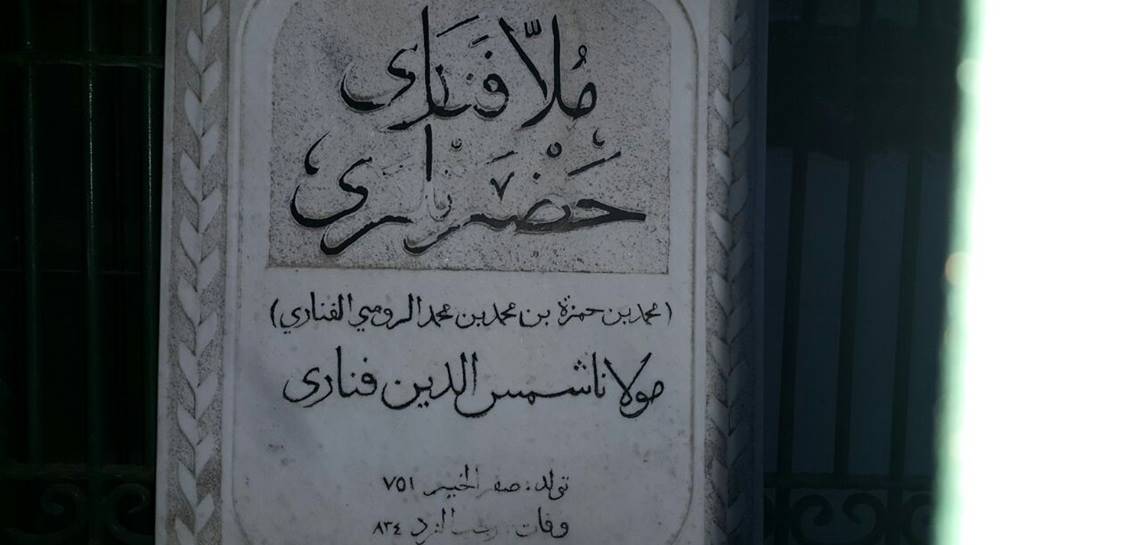 مُلّا فَنَارَی
حَضْرَتْلَرِی
(محمد بن حمزة بن محمد بن محمد الرومي الفناري)
مولانا شمس الدین فناری
تولد: صفر الخير ٧٥١
وفات: رجب الفرد ٨٣٤